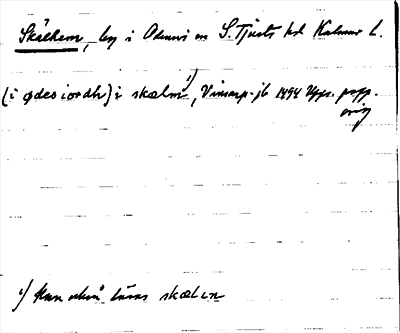 Skälhem, by i Odensvi sn S. Tjusts hd Kalmar l.
(i ødes iordh) i skælm¹), Vinsarp-jb 1494 Upps. papp.
orig
¹) Kan också läsas skælen